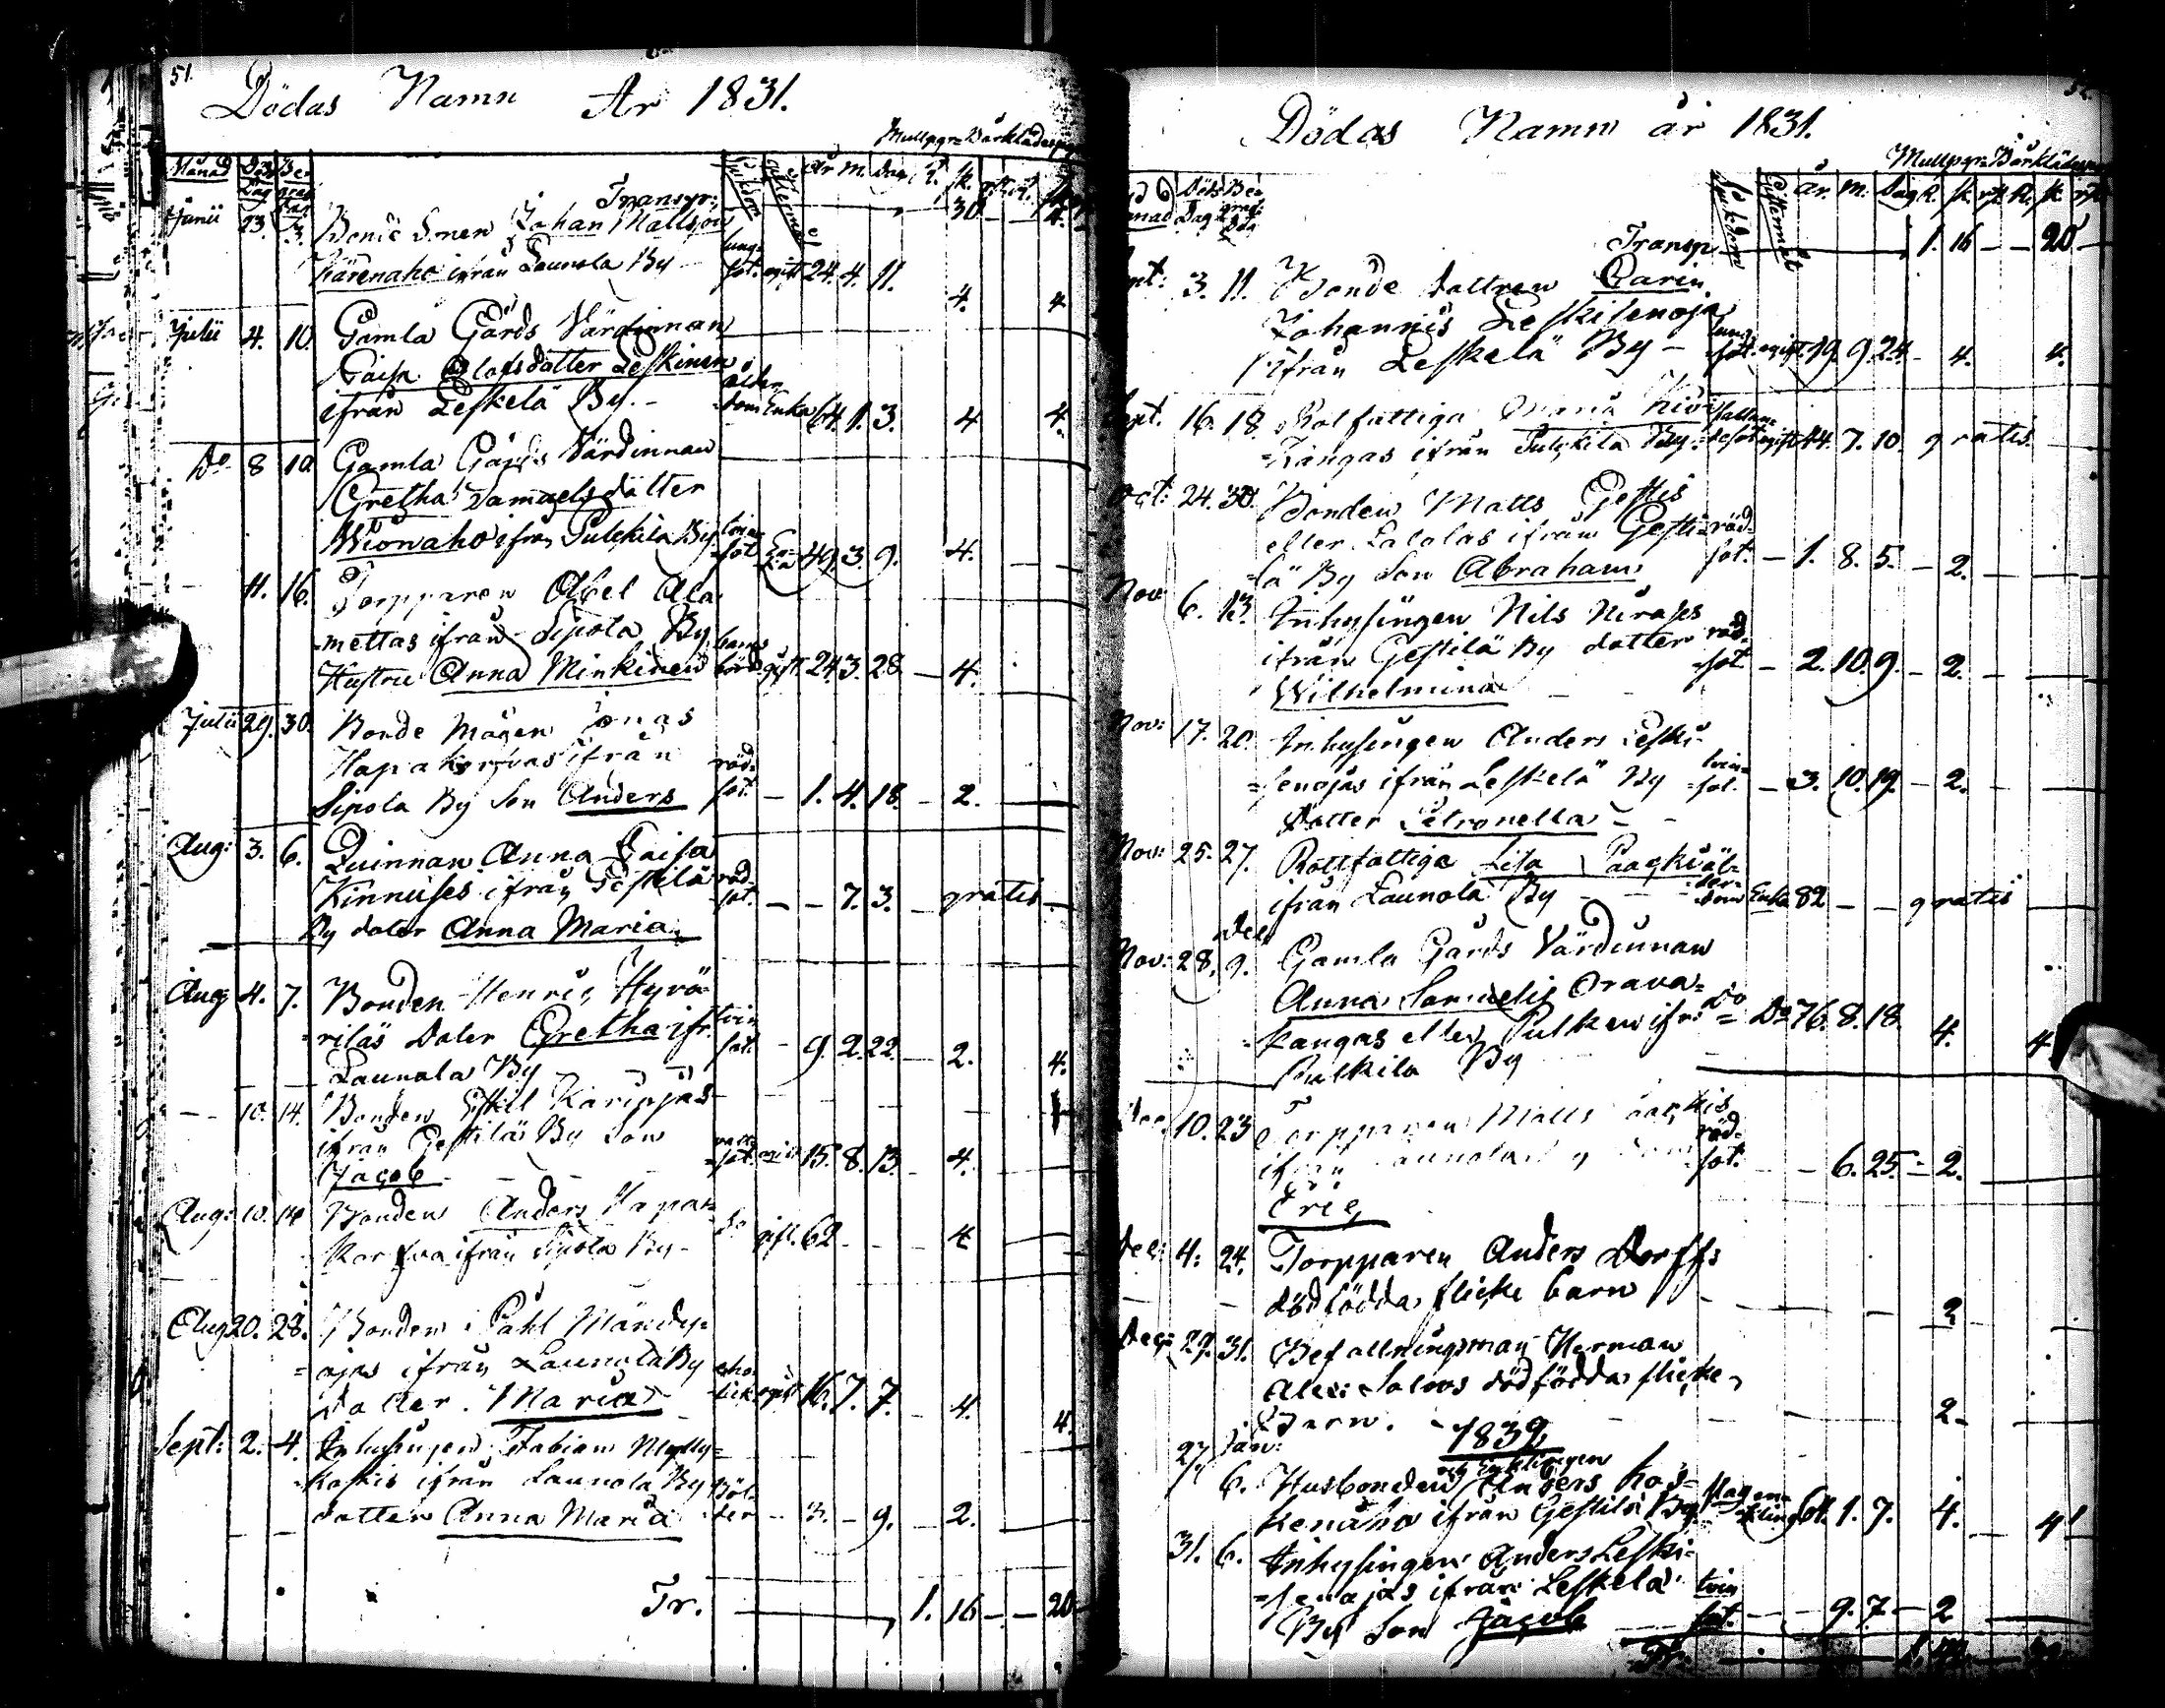 51.
Dödas Namn År 1831.
Mullpgr= Bårklädespgr
Månad Döds Dag Be= grafs Dag Sjukdom Giftermål År M. Dag R. sk. rst. R. sk.
Transp: 30 – – 4.
Junii 23. 3. Bonde Sonen Johan Mattsson
Kärenaho ifrån Launola By – lung= sot. ogift 24. 4. 11. 4. 4
Julii 4. 10. Gamla Gårds Värdinnan
Caisa Olofsdotter Leskinen
ifrån Leskelä By. – ålder= dom Enka 64. 1. 3. 4 4.
Do 8 10 Gamla Gårds Värdinnan
Gretha Samuelsdotter
Wionaho ifrån Pulkkila By tvin= sot En= ka 49. 3. 9. 4.
11. 16. Torpparen Abel Ala=
=mettas ifrån Sipola By
Hustru Anna Minkinen barns börd gift. 24 3. 28. – 4.
Julii 29. 30. Bonde Mågen Jonas
Hapakorfvas ifrån
Sipola By Son Anders röd= sot. – 1. 4. 18. – 2.
Aug: 3. 6. Quinnan Anna Caisa
Kinnuses ifrån Gestilä
By doter Anna Maria röd= sot. – – 7. 3. – gratis –
Aug 4. 7. Bonden Henric Hyvä=
=riläs Doter Gretha ifr.
Launola By tvin sot – 9 2. 22. – 2. 4.
– – 10. 14. Bonden Eskil Karipjäs
ifrån Gestilä By Son
Jacob – – – sot. ogift 15. 8. 13. – 4.
Aug: 10. 14 Bonden Anders Hapa=
korfva ifrån Sipola By – Do gift. 62 – – – 4
Aug 20. 28. Bonden Påhl Mändy=
=ajas ifrån Launola By
datter Maria ogift 16. 7. 7. – 4. 4.
Sept: 2. 4. Inhysingen Fabian Mylly=
=koskis ifrån Launola By
dotter Anna Maria – 3. – 9. – 2.
Tr. 1. 16 – – 20
52.
Dödas Namn år 1831.
Mullpgr= Bårklädespgr
Månad Döds Dag Be= grafs Dag Sjukdom Giftermål år. M. Dag R. sk. rst R. sk. rst
Transp 1. 16 – – 20
Sept: 3. 11. Bonde dottren Carin
Johannis Leskisenoja
ifrån Leskelä By – lung= sot. ogift. 19. 9. 24. – 4. 4.
Sept. 16. 18. Rotfattiga Maria Kivi=
=Kangas ifrån Pulkkila By. ogift 44. 7. 10. gratis
Oct: 24. 30. Bonden Matts Gestis
eller Lalolas ifrån Gesti=
=lä By Son Abraham röd= sot. – 1. 8. 5. – 2.
Nov 6. 13. Inhysingen Nils Nirases
ifrån Gestilä By dotter
Wilhelmina röd= sot – 2. 10. 9. – 2.
Nov: 17. 20. Inhysingen Anders Leski=
=senojas ifrån Leskelä By
dotter Petronella tvin= sot. – 3. 10. 19. – 2.
Nov: 25. 27. Rottfattiga Lisa Paack
ifrån Launola By ål= der= dom Enka 82 – – gratis
Nov: 28. Dec 9. Gamla Gårds Värdinnan
Anna Samuelis Orava=
=kangas eller Pulken ifr.
Pulkila By Do Do 76. 8. 18. 4. 4
Dec. 10. 23 Torpparen Matts
ifrån Launola By Son
Eric röd= sot. – – 6. 25. – 2.
Dec: 4. 24. Torpparen Anders Dorffs
dödfödda flicke barn 2
Dec: 29. 31. Befallningsman Herman
Alex: Salvos dödfödda flicke=
Barn. – 2 –
1832
27 Jan: 6. Husbonden och Enklingen Anders Kos=
kenaho ifrån Gestilä By. Magen= Enkling 61. 1. 7. 4. – 4
31. 6. Inhysingen Anders Leski=
=senojas ifrån Leskelä
By Son Jacob tvin sot. – – 9. 7. – 2
Tr.